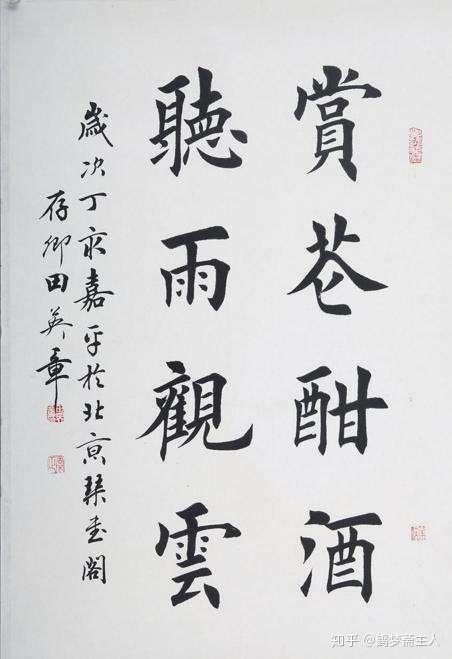 賞花酣酒
聽雨觀雲
歲次丁亥嘉平於北京琹書閣
存卿田英章
知乎 @鹤梦斋主人